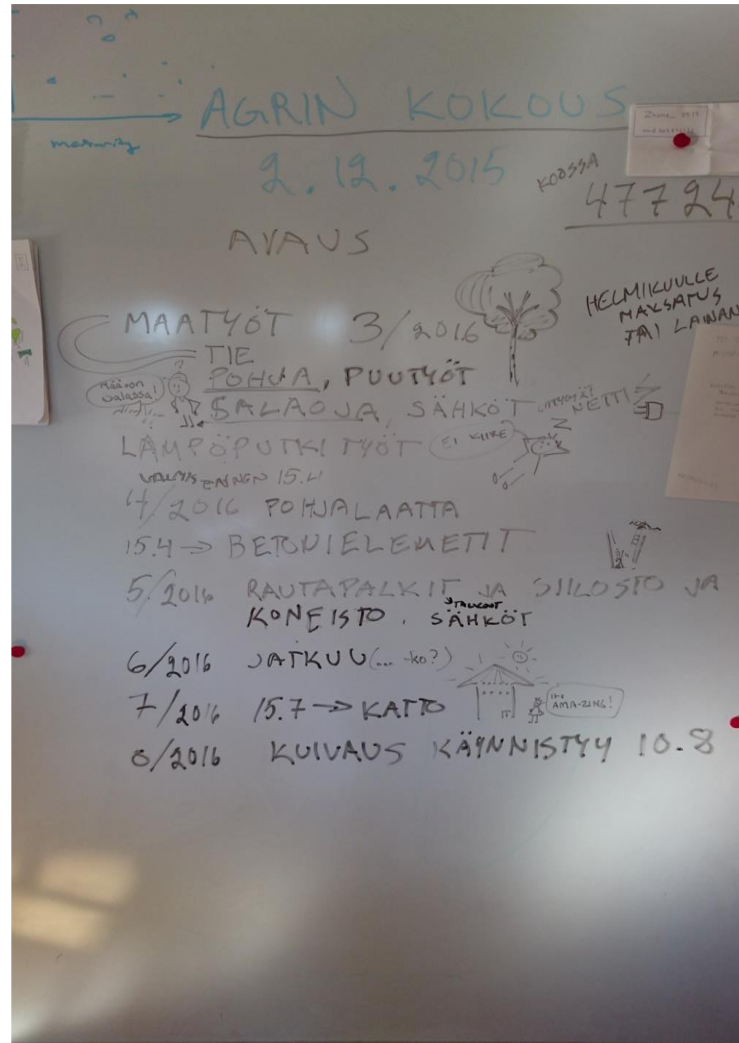 maturity
AGRIN KOKOUS
2.12.2015
KOOSSA
47724
AVAUS
HELMIKUULLE
MAKSATUS
TAI LAINAN
MAATYÖT 3/2016
TIE
POHJA, PUUTYÖT
valossa!
SALAOJA, SÄHKÖT NETTI
LÄMPÖPUTKITYÖT EI KIIRE
ENNEN 15.4
4/2016 POHJALAATTA
15.4 → BETONIELEMETIT
5/2016 RAUTAPALKIT JA SIILOSTO JA
KONEISTO. SÄHKÖT
6/2016 JATKUU (... -ko?)
7/2016 15.7 → KATTO
AMA-ZING!
8/2016 KUIVAUS KÄYNNISTYY 10.8